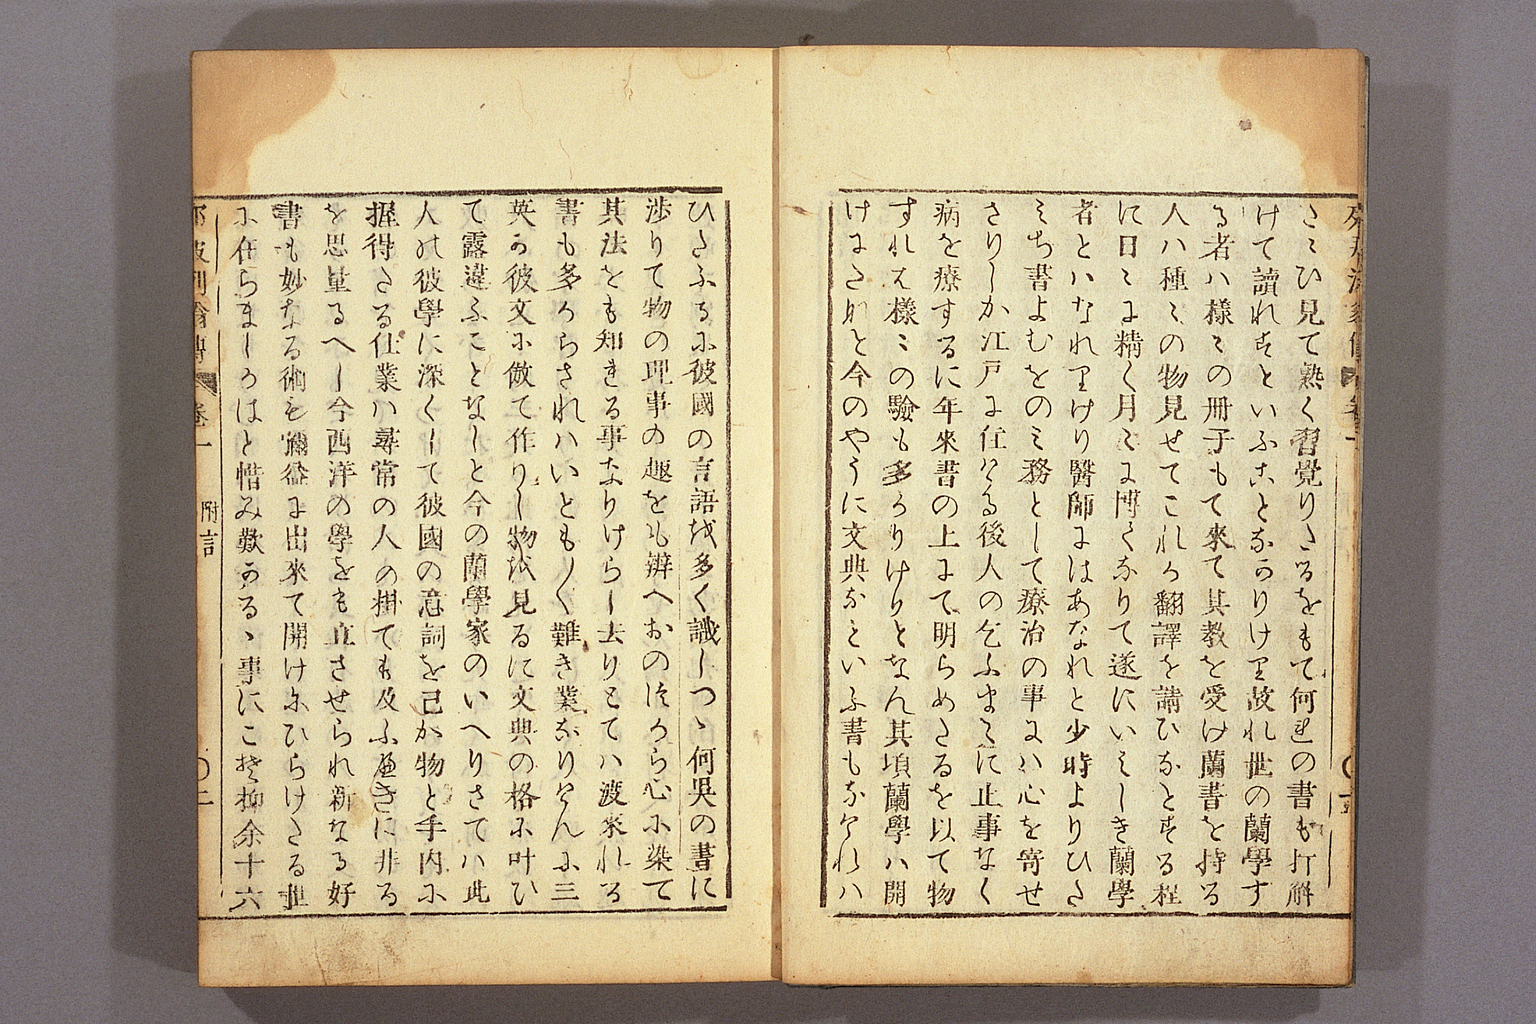 さゝひ見て熟く習覺りたるをもて何くれの書も打解
けて讀れすといふことなかりけり故れ世の蘭學す
る者ハ樣〻の冊子もて來て其教を受け蘭書を持る
人ハ種〻の物見せてこれか翻譯を請ひなとする程
に日〻に精く月〻に博くなりて遂にいみしき蘭學
者とハなれりけり醫師にはあなれと少時よりひた
みち書よむをのミ務として療治の事にハ心を寄せ
さりしか江戸に住ける後人の乞ふまゝに止事なく
病を療するに年來書の上にて明らめたるを以て物
すれは樣〻の驗も多かりけりとなん其頃蘭學ハ開
けにたれと今のやうに文典なといふ書もなけれハ
ひたふるに彼國の言語を多く識しつゝ何呉の書に
渉りて物の理事の趣をも辨へおのつから心に染て
其法をも知きる事なりけらし去りとてハ渡來れる
書も多からされハいとも〳〵難き業なりけんに三
英か彼文に倣て作りし物を見るに文典の格に叶ひ
て露違ふことなしと今の蘭學家のいへりさてハ此
人の彼學に深くして彼國の意詞を己か物と手内に
握得たる仕業ハ尋常の人の掛ても及ふへきに非る
を思量るへし今西洋の學をも直させられ新なる好
書も妙なる術も彌益に出來て開けにひらけたる世
に在らましかはと惜み歎かるゝ事にこそ抑余十六
卷一　附言　〇二